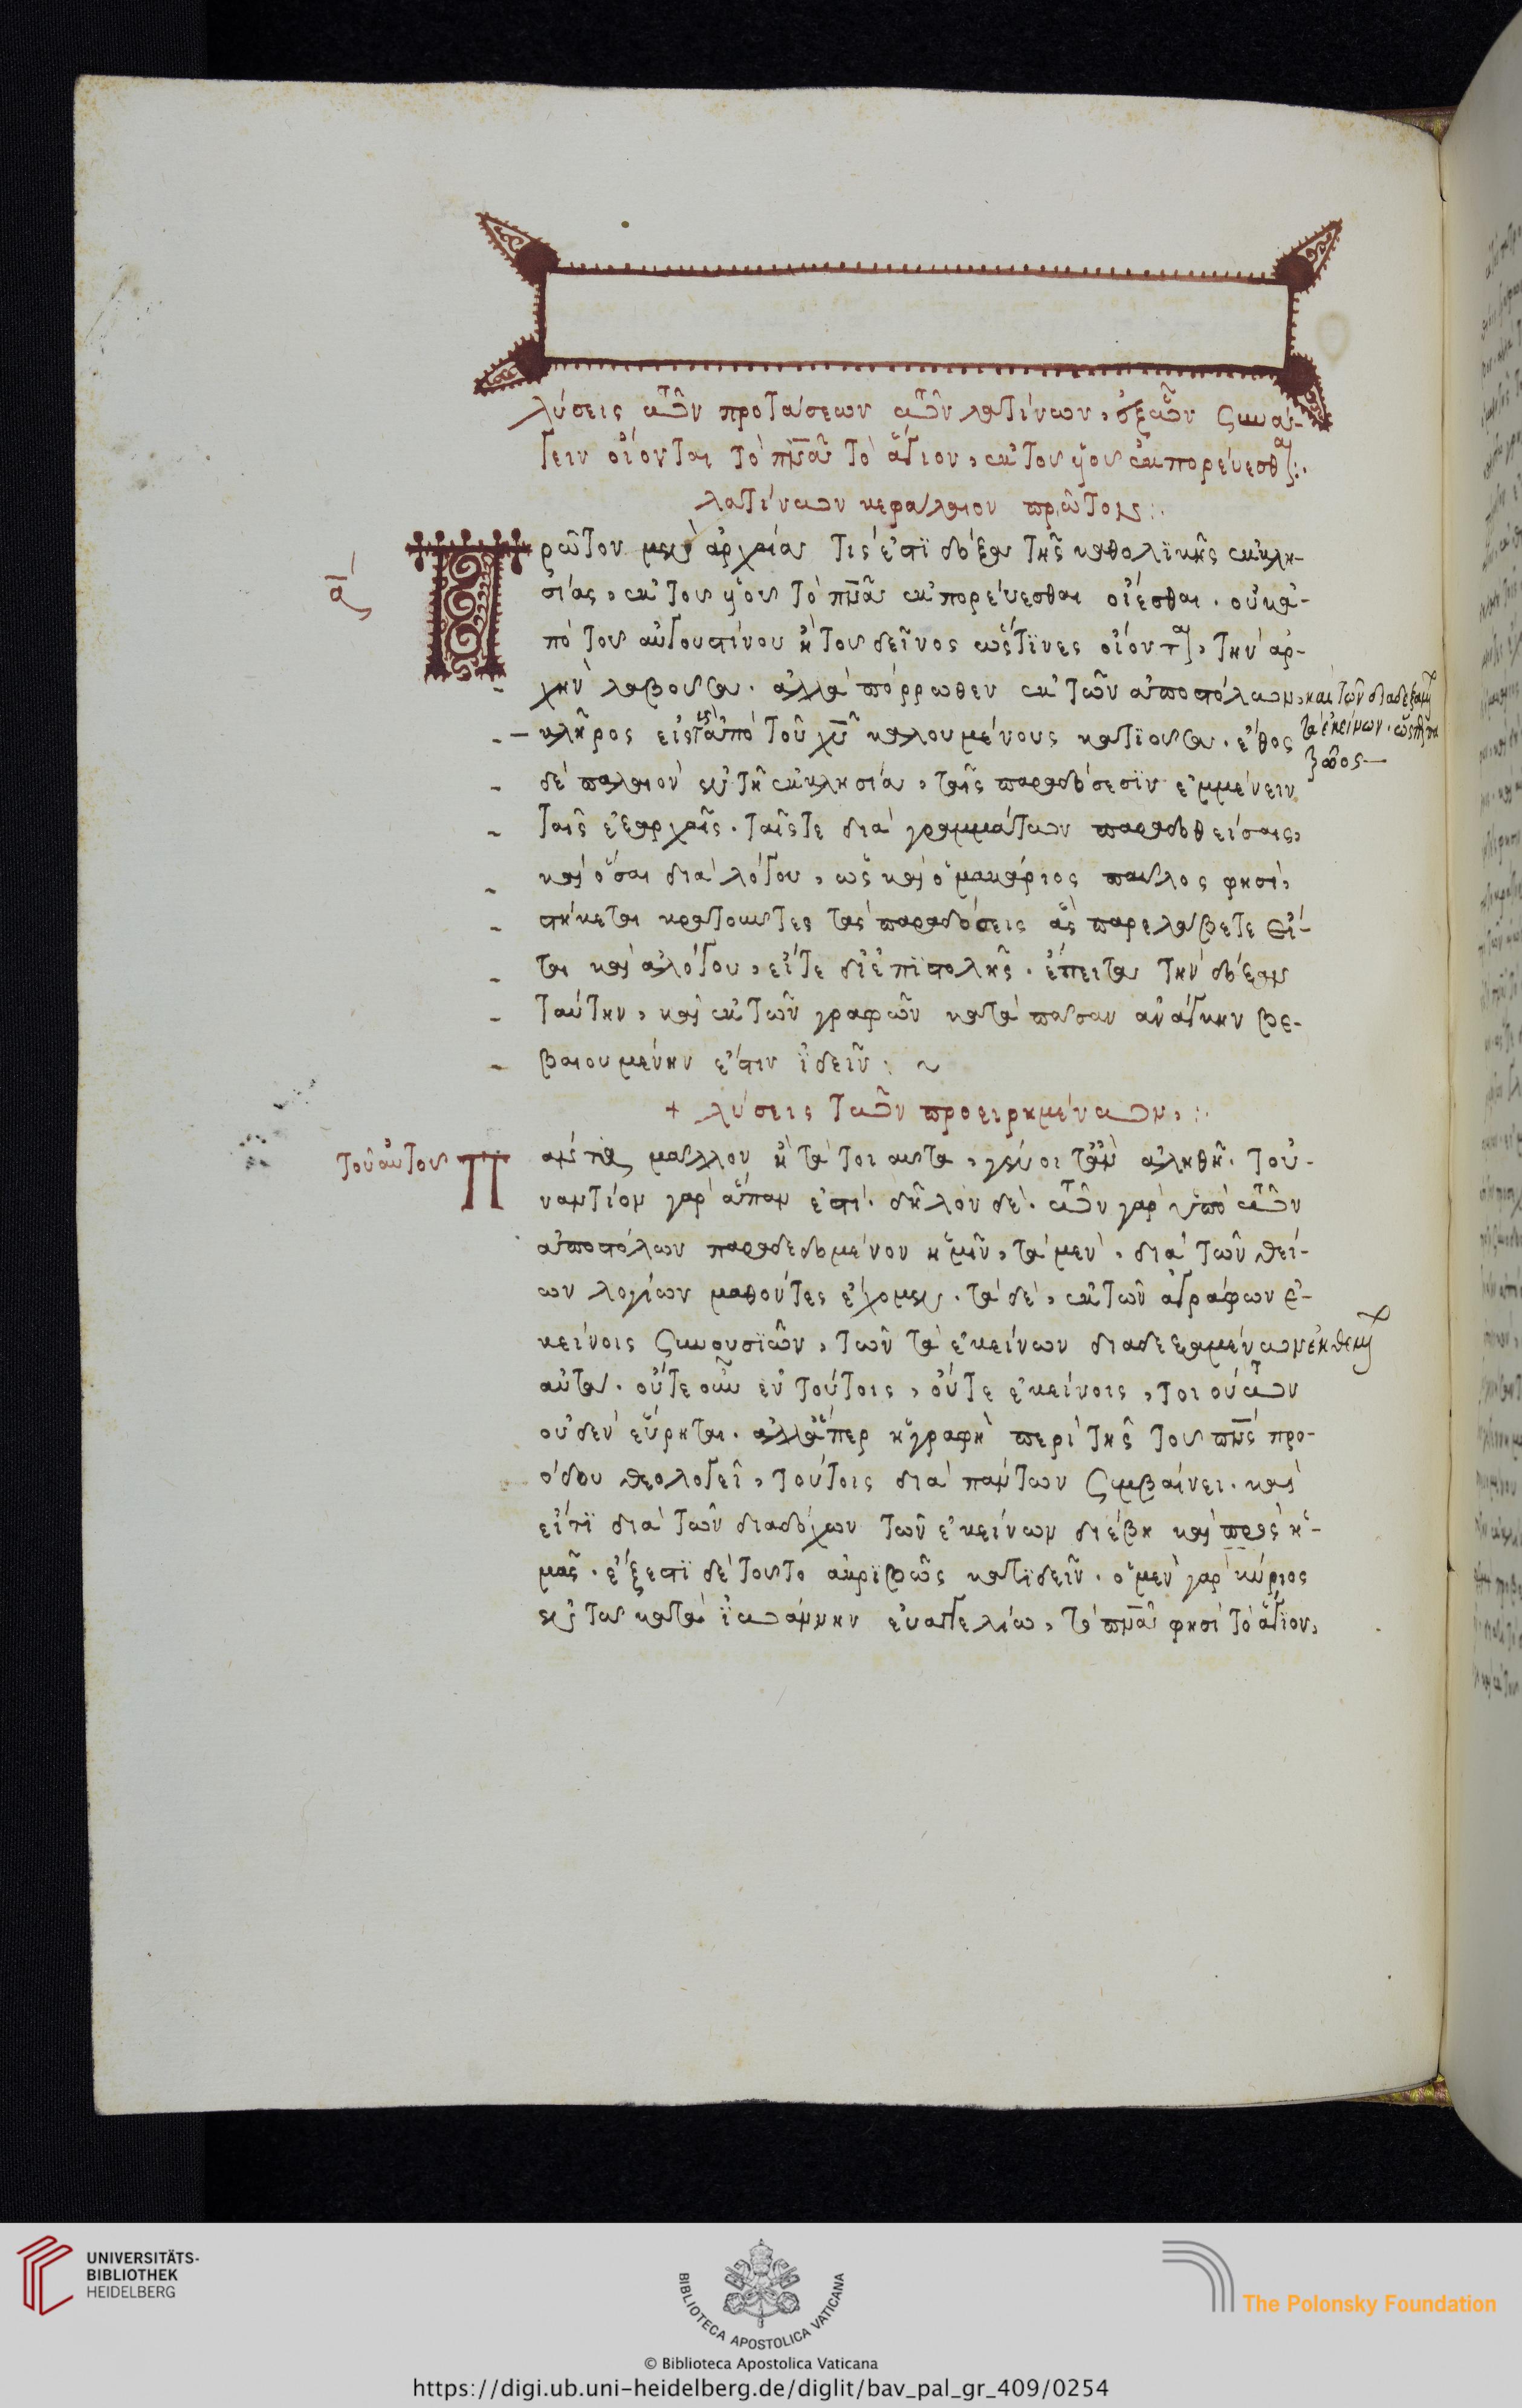 λύσεις τῶν προτάσεων τῶν λατίνων, ἐξ ὧν συνά-
γειν οἴονται τὸ πν̅α τὸ ἅγιον, ἐκ τοῦ υἱοῦ ἐκπορεύεσθαι:·
λατίνων κεφάλαιον πρῶτον:·
α
Πρῶτον μὲν ἀρχαία τίς ἐστι δόξα τῆς καθολικῆς ἐκκλη-
σίας, ἐκ τοῦ υἱοῦ τὸ πν̅α ἐκπορεύεσθαι οἴεσθαι. οὐκ ἀ-
πὸ τοῦ αὐγουστίνου ἢ τοῦ δεῖνος ὥς τινες οἴονται, τὴν ἀρ-
χὴν λαβοῦσα. ἀλλὰ πόρρωθεν ἐκ τῶν ἀποστόλων, καὶ τῶν διαδεξαμ
τὰ ἐκείνων. ὥσπερ
κλῆρος εἰς τοὺς ἀπὸ τοῦ χ̅υ καλουμένους κατιοῦσα. ἔθος
δὲ παλαιὸν ἐν τῇ ἐκκλησία, ταῖς παραδόσεσιν ἐμμένειν
ταῖς ἐξαρχαῖς. ταῖς τε διὰ γραμμάτων παραδοθείσαις,
καὶ ὅσαι διὰ λόγου, ὡς καὶ ὁ μακάριος παῦλος φησί,
στήκεται κρατοῦντες τὰς παραδόσεις ἃς παρελάβετε εἴ-
ται διὰ λόγου, εἴτε δι' ἐπιστολῆς. ἔπειτα τὴν δόξαν
ταύτην, καὶ ἐκ τῶν γραφῶν κατὰ πᾶσαν ἀνάγκην βε-
βαιουμένην ἔστιν ἰδεῖν: ~
+ λύσεις τῶν προειρημένων:·
τοῦ αὐτοῦ
Πάντα μᾶλλον ἢ τὰ τοιαῦτα, γένοιτ' ἂν ἀληθῆ. τοὐ-
ναντίον γὰρ ἅπαν ἐστί. δῆλον δέ. τῶν γὰρ ὑπὸ τῶν
ἀποστόλων παραδεδομένον ἡμῖν, τὰ μὲν, διὰ τῶν θεί-
ων λογίων μαθόντες ἔχομεν. τὰ δὲ, ἐκ τῶν ἀγράφων ἐ-
κείνοις συνουσιῶν, τῶν τὰ ἐκείνων διαδεξαμένων ἐκθεμ
αὐτά. οὔτε οὖν ἐν τούτοις, οὔτε ἐκείνοις, τοιοῦτον
οὐδὲν εὕρηται. ἀλλ' ἅπερ ἡ γραφὴ περὶ τῆς τοῦ πν̅ς προ-
όδου θεολογεῖ, τούτοις διὰ πάντων συμβαίνει. καὶ
εἴ τι διὰ τῶν διαδόχων τῶν ἐκείνων διέβη καὶ πρὸς ἡ-
μᾶς. ἔξεστι δὲ τοῦτο ἀκριβῶς κατιδεῖν. ὁ μὲν γὰρ κύριος
ἐν τῶ κατὰ ἰωάννην εὐαγγελίω, τὸ πν̅α φησὶ τὸ ἅγιον,
UNIVERSITÄTS-
BIBLIOTHEK
HEIDELBERG
BIBLIOTECA APOSTOLICA VATICANA
The Polonsky Foundation
© Biblioteca Apostolica Vaticana
https://digi.ub.uni-heidelberg.de/diglit/bav_pal_gr_409/0254